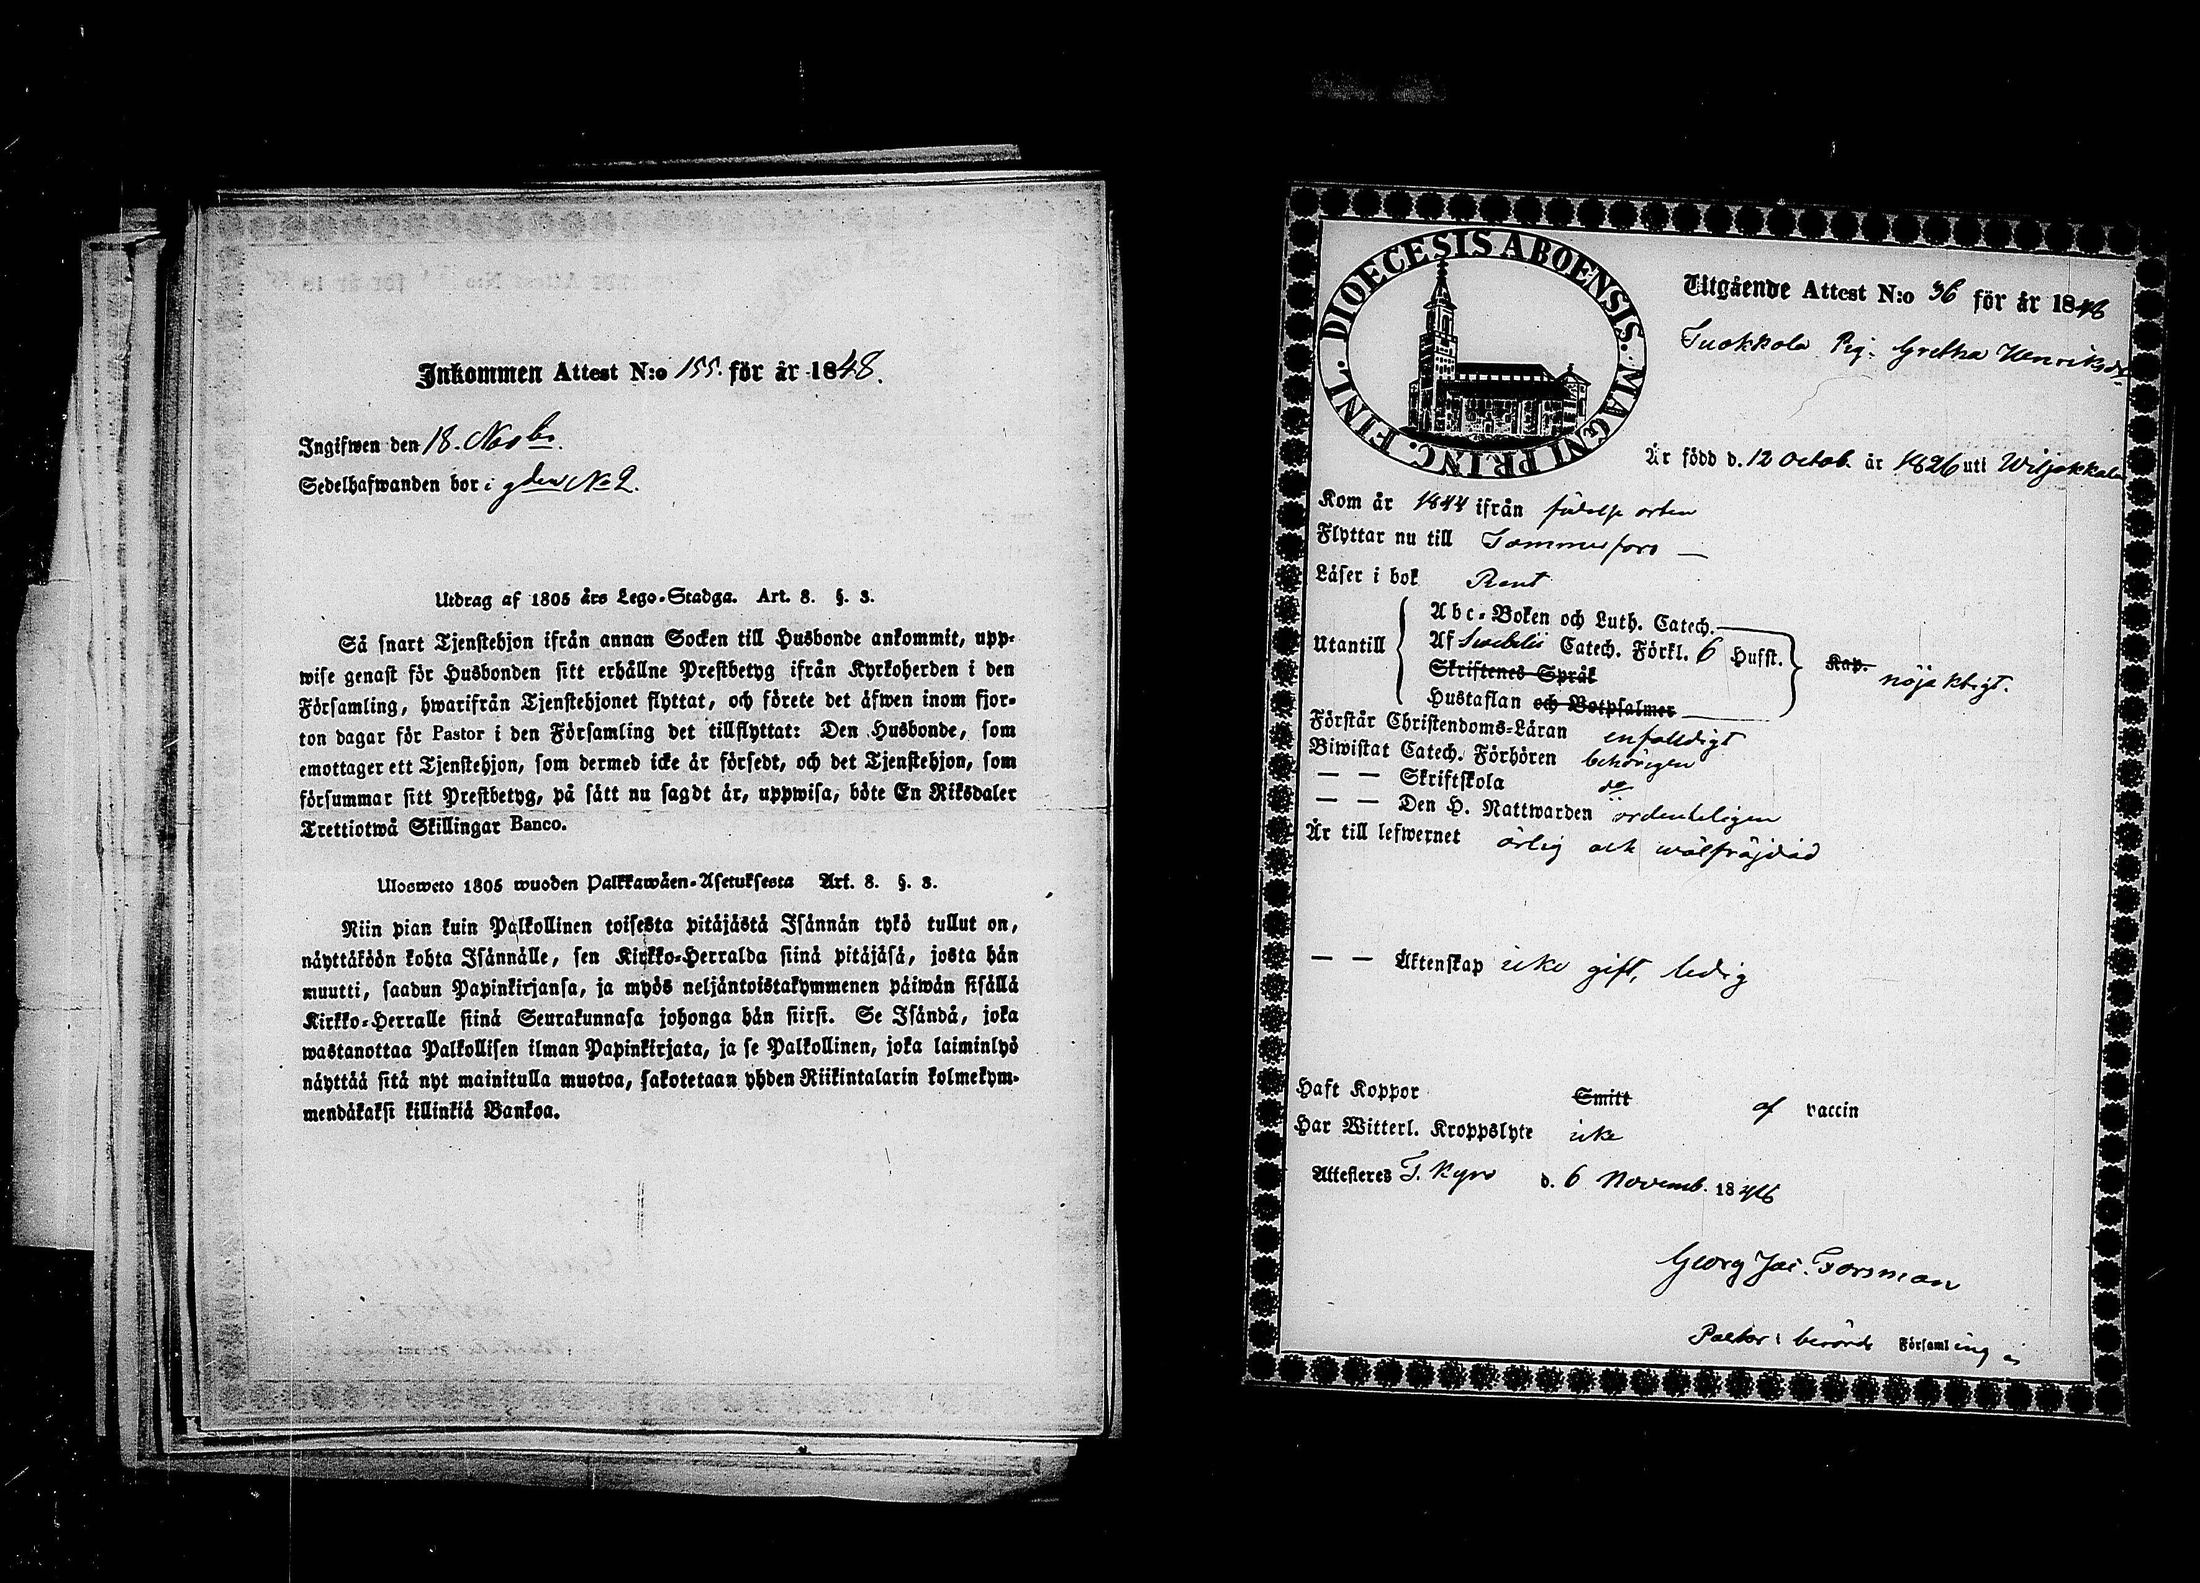 Inkommen Attest N:o 155. för år 1848.
Ingifwen den 18. Novbr.
Sedelhafwanden bor i gden No 2.
Utdrag af 1805 års Lego-Stadga. Art. 8. §. 3.
Så snart Tjenstehjon ifrån annan Socken till Husbonde ankommit, upp-
wise genast för Husbonden sitt erhållne Prestbetyg ifrån Kyrkoherden i den
Församling, hwarifrån Tjenstehjonet flyttat, och förete det äfwen inom fjor-
ton dagar för Pastor i den Församling det tillflyttat: Den Husbonde, som
emottager ett Tjenstehjon, som dermed icke är försedt, och det Tjenstehjon, som
försummar sitt Prestbetyg, på sätt nu sagdt är, uppwisa, böte En Riksdaler
Trettiotwå Skillingar Banco.
Ulosweto 1805 wuoden Palkkawäen-Asetuksesta Art. 8. §. 3.
Niin pian kuin Palkollinen toisesta pitäjästä Isännän tykö tullut on,
näyttäköön kohta Isännälle, sen Kirkko-Herralda siinä pitäjäsä, josta hän
muutti, saadun Papinkirjansa, ja myös neljäntoistakymmenen päiwän sisällä
Kirkko-Herralle siinä Seurakunnasa johonga hän siirsi. Se Isändä, joka
wastanottaa Palkollisen ilman Papinkirjata, ja se Palkollinen, joka laiminlyö
näyttää sitä nyt mainitulla muotoa, sakotetaan yhden Riikintalarin kolmekym-
mendäkaksi killinkiä Bankoa.
DIOECESIS ABOENSIS. MAGNI PRINC. FINL.
Utgående Attest N:o 36 för år 1846
Suokkola Pig. Gretha Henriksdr
Är född d. 12 Octob. år 1826 uti Wiljakkala
Kom år 1844 ifrån födelse orten
Flyttar nu till Tammerfors —
Läser i bok Rent
Utantill
Abc-Boken och Luth. Catech.
Af Svebelii Catech. Förkl. 6 Hufst.
Skriftenes Språk
Hustaflan och Botpsalmer
Kap. nöjaktigt.
Förstår Christendoms-Läran enfaldigt
Biwistat Catech. Förhören behörigen
— — Skriftskola do
— — Den H. Nattwarden ordenteligen
Är till lefwernet ärlig och wälfräjdad
— — Äktenskap icke gift, ledig
Haft Koppor Smitt af vaccin
Har Witterl. Kroppslyte icke
Attesteres T. Kyro d. 6 Novemb. 1846
Georg Jac. Forsman
Pastor i berörde Församling